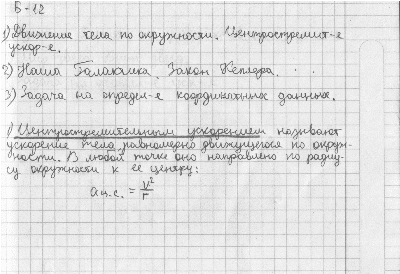 Б-12
1) Движение тела по окружности. Центростремит-е
ускор-е.
2) Наша Галактика. Закон Кеплера.
3) Задача на определ-е координатных данных.
1) Центростремительным ускорением называют
ускорение тела равномерно движущегося по окруж-
ности. В любой точке оно направлено по радиу-
су окружности к её центру:
aц.с. = V²/r